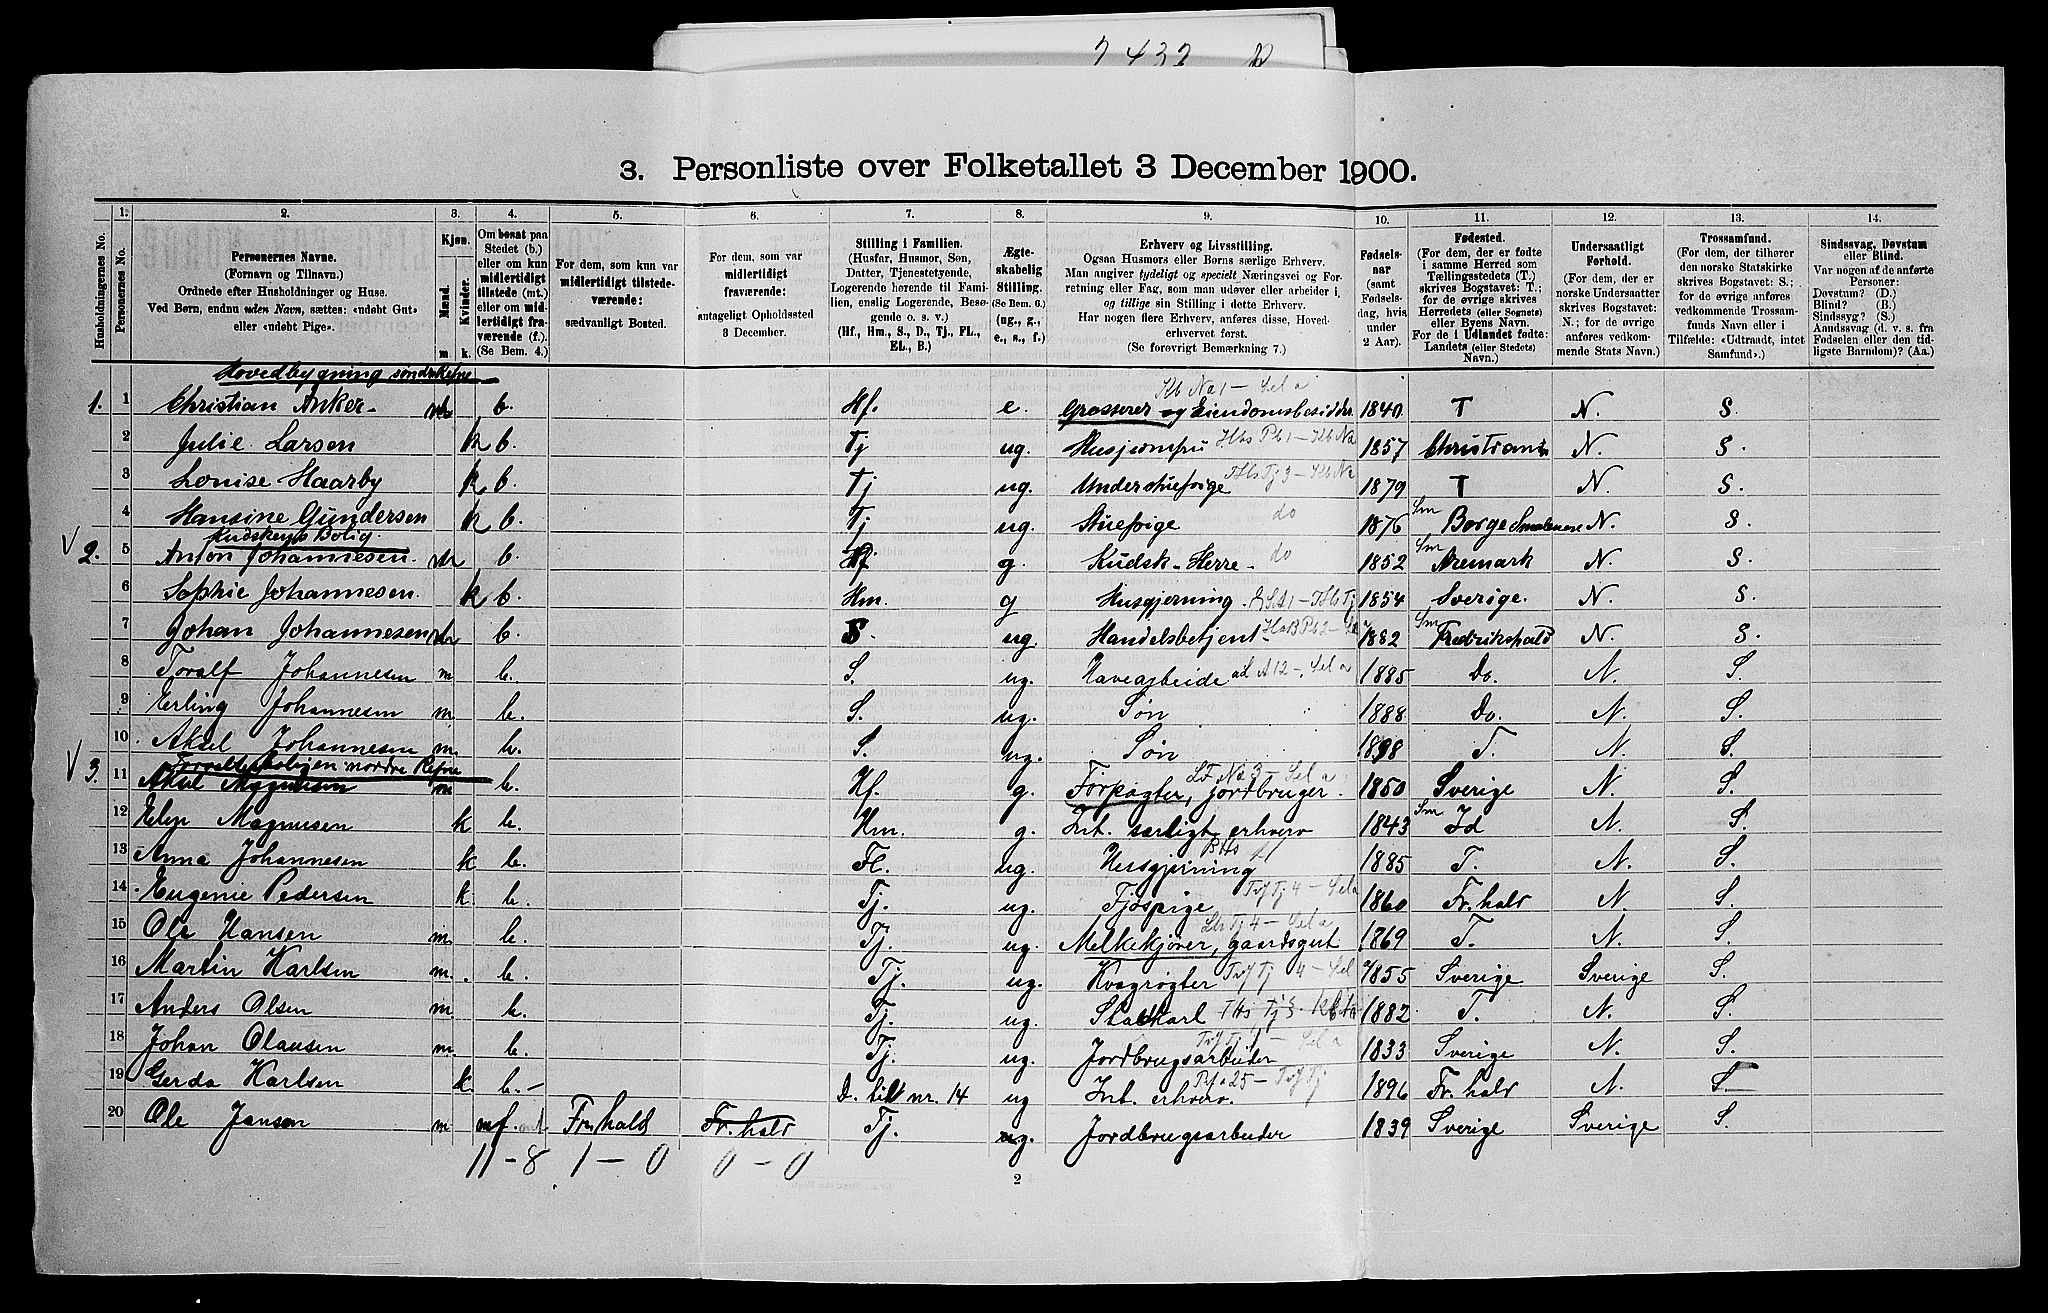 2432
3. Personliste over Folketallet 3 December 1900.
Husholdningernes No.
1. Personernes No.
2. Personernes Navne.
(Fornavn og Tilnavn.)
Ordnede efter Husholdninger og Huse.
Ved Børn, endnu uden Navn, sættes: «udøbt Gut»
eller «udøbt Pige».
3. Kjøn.
Mænd. Kvinder.
m. k.
4. Om bosat paa
Stedet (b.)
eller om kun
midlertidigt
tilstede (mt.)
eller om mid-
lertidigt fra-
værende (f.).
(Se Bem. 4.)
5. For dem, som kun var
midlertidigt tilstede-
værende:
sædvanligt Bosted.
6. For dem, som var
midlertidigt
fraværende:
antageligt Opholdssted
3 December.
7. Stilling i Familien.
(Husfar, Husmor, Søn,
Datter, Tjenestetyende,
Logerende hørende til Fami-
lien, enslig Logerende, Besø-
gende o. s. v.)
(Hf., Hm., S., D., Tj., FL.,
EL., B.)
8. Ægte-
skabelig
Stilling.
(Se Bem. 6.)
(ug., g.,
e., s., f.)
9. Erhverv og Livsstilling.
Ogsaa Husmors eller Børns særlige Erhverv.
Man angiver tydeligt og specielt Næringsvei og For-
retning eller Fag, som man udøver eller arbeider i,
og tillige sin Stilling i dette Erhverv.
Har nogen flere Erhverv, anføres disse, Hoved-
erhvervet først.
(Se forøvrigt Bemærkning 7.)
10. Fødsels-
aar
(samt
Fødsels-
dag, hvis
under
2 Aar).
11. Fødested.
(For dem, der er fødte
i samme Herred som
Tællingsstedets (T.)
skrives Bogstavet: T.;
for de øvrige skrives
Herredets (eller Sognets)
eller Byens Navn.
For de i Udlandet fødte:
Landets (eller Stedets)
Navn.)
12. Undersaatligt
Forhold.
(For dem, der er
norske Undersaatter
skrives Bogstavet:
N.; for de øvrige
anføres vedkom-
mende Stats Navn.)
13. Trossamfund.
(For dem, der tilhører
den norske Statskirke
skrives Bogstavet: S.;
for de øvrige anføres
vedkommende Trossam-
funds Navn eller i
Tilfælde: «Udtraadt, intet
Samfund».)
14. Sindssvag, Døvstum
eller Blind.
Var nogen af de anførte
Personer:
Døvstum? (D.)
Blind? (B.)
Sindssyg? (S.)
Aandssvag (d. v. s. fra
Fødselen eller den tid-
ligste Barndom)? (Aa.)
Hovedbygning søndre Refne
1. 1 Christian Anker m b. Hf. e. Grosserer og Eiendomsbesidder 1840 T N. S.
2 Julie Larsen k b. Tj ug. Husjomfru 1857 N. S.
3 Lovise Haarby k b. Tj ug. Understuepige 1879 T N. S.
4 Hansine Gundersen k b. Tj ug. Stuepige do 1876 Sm Borge Smaalenene N. S.
Kudskens Bolig
2. 5 Anton Johannesen m b. Hf g. Kudsk - Herre - do 1852 Sm Aremark N. S.
6 Sophie Johannesen k b. Hm. g Husgjerning 1854 Sverige. N. S.
7 Johan Johannesen m b. S. ug. Handelsbetjent 1882 Sm Fredrikshald N. S.
8 Toralf Johannesen m b. S. ug. Havearbeide 1885 Do. N. S.
9 Erling Johannesen m b. S. ug. Søn 1888 Do. N. S.
10 Aksel Johannesen m. b. S. ug. Søn T. N. S.
Forvalterboligen nordre Refne
3. 11 Aksel Magnusen m b. Hf. g. Forpagter, jordbruger. 1850 Sverige N. S.
12 Elen Magnusen k b. Hm. g. Int. særligt erhverv 1843 Sm Id N. S.
13 Anna Johannesen k b. Fl. ug. Husgjerning 1885 T. N. S.
14 Eugenie Pedersen k. b. Tj. ug. Fjøspige 1860 Fr. hald N. S.
15 Ole Hansen m. b. Tj. ug. Melkekjører, gaardsgut 1869 T. N. S.
16 Martin Karlsen m. b. Tj. ug. Kvægrøgter 1855 Sverige Sverige S.
17 Anders Olsen m. b. Tj. ug. Staldkarl 1882 T. N. S.
18 Johan Olausen m b. Tj. ug. Jordbrugsarbeider 1833 Sverige N. S.
19 Gerda Karlsen k b. - D. til nr. 14 ug Int. erhverv. 1896 Fr. hald N. S.
20 Ole Janson m mt Fr. hald Fr. hald Tj. ug. Jordbrugsarbeider 1839 Sverige Sverige S.
11 - 8 1 - 0 0 - 0
2